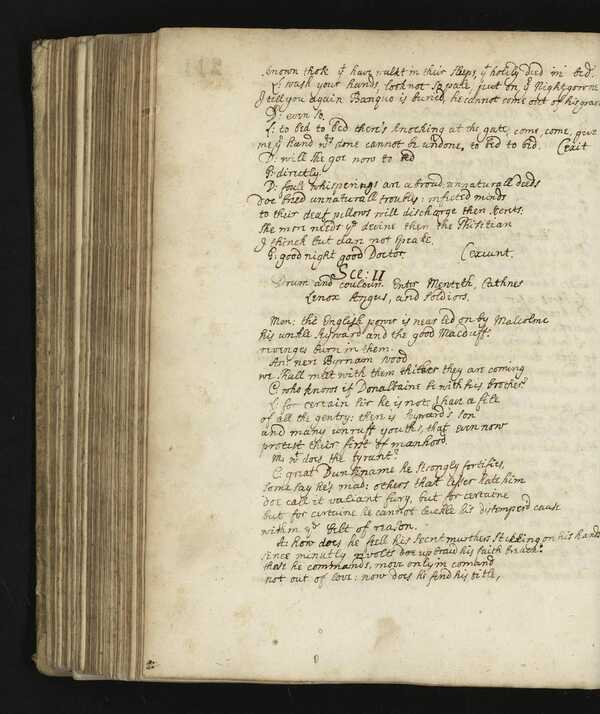 known thos yt have walkt in their sleeps, yt holily died in bed.
L: wash your hands, look not so pale, put on yr Nightgowne
I tell you again Banquo is buried, he cannot come out of his grave
D: even so.
L: to bed to bed there's knocking at the gate, come, come, give
me yr hand wts done cannot be undone, to bed to bed. (exit
D: will she goe now to bed
G: directly.
D: foull whisperings are abroad, unnaturall deeds
doe breed unnaturall troubles: infected minds
to their deaf pillows will discharge their secrets:
she more needs ye devine then the Phisitian
I thinck but dare not speake.
G: good night good Doctor. (exeunt.
Sce: II
Drum and coulours. Enter Menteth, Cathnes
Lenox Angus, and soldiors.
Men: the English power is near led on by Malcolme
his unkle Syward and the good Macduff:
revenges burn in them.
An: near Byrnam wood
we shall meet with them thither they are coming
C: who knows if Donalbaine be with his brother
L: for certain sir he is not, I have a file
of all the gentry: there is Sywards son
and many unruff youths, that even now
protest their first of manhood.
M: wt does the tyrant?
C: great Dunsiname he strongly fortifies,
some say he's mad: others that lesser hate him
doe call it valiant fury, but for certaine
but for certaine he cannot buckle his distemperd cause
within ye belt of reason.
A: how does he feel his secret murthers sticking on his hands
since minutly revolts doe upbraid his faith breach:
those he commands, move only in comand
not out of love: now does he find his title,